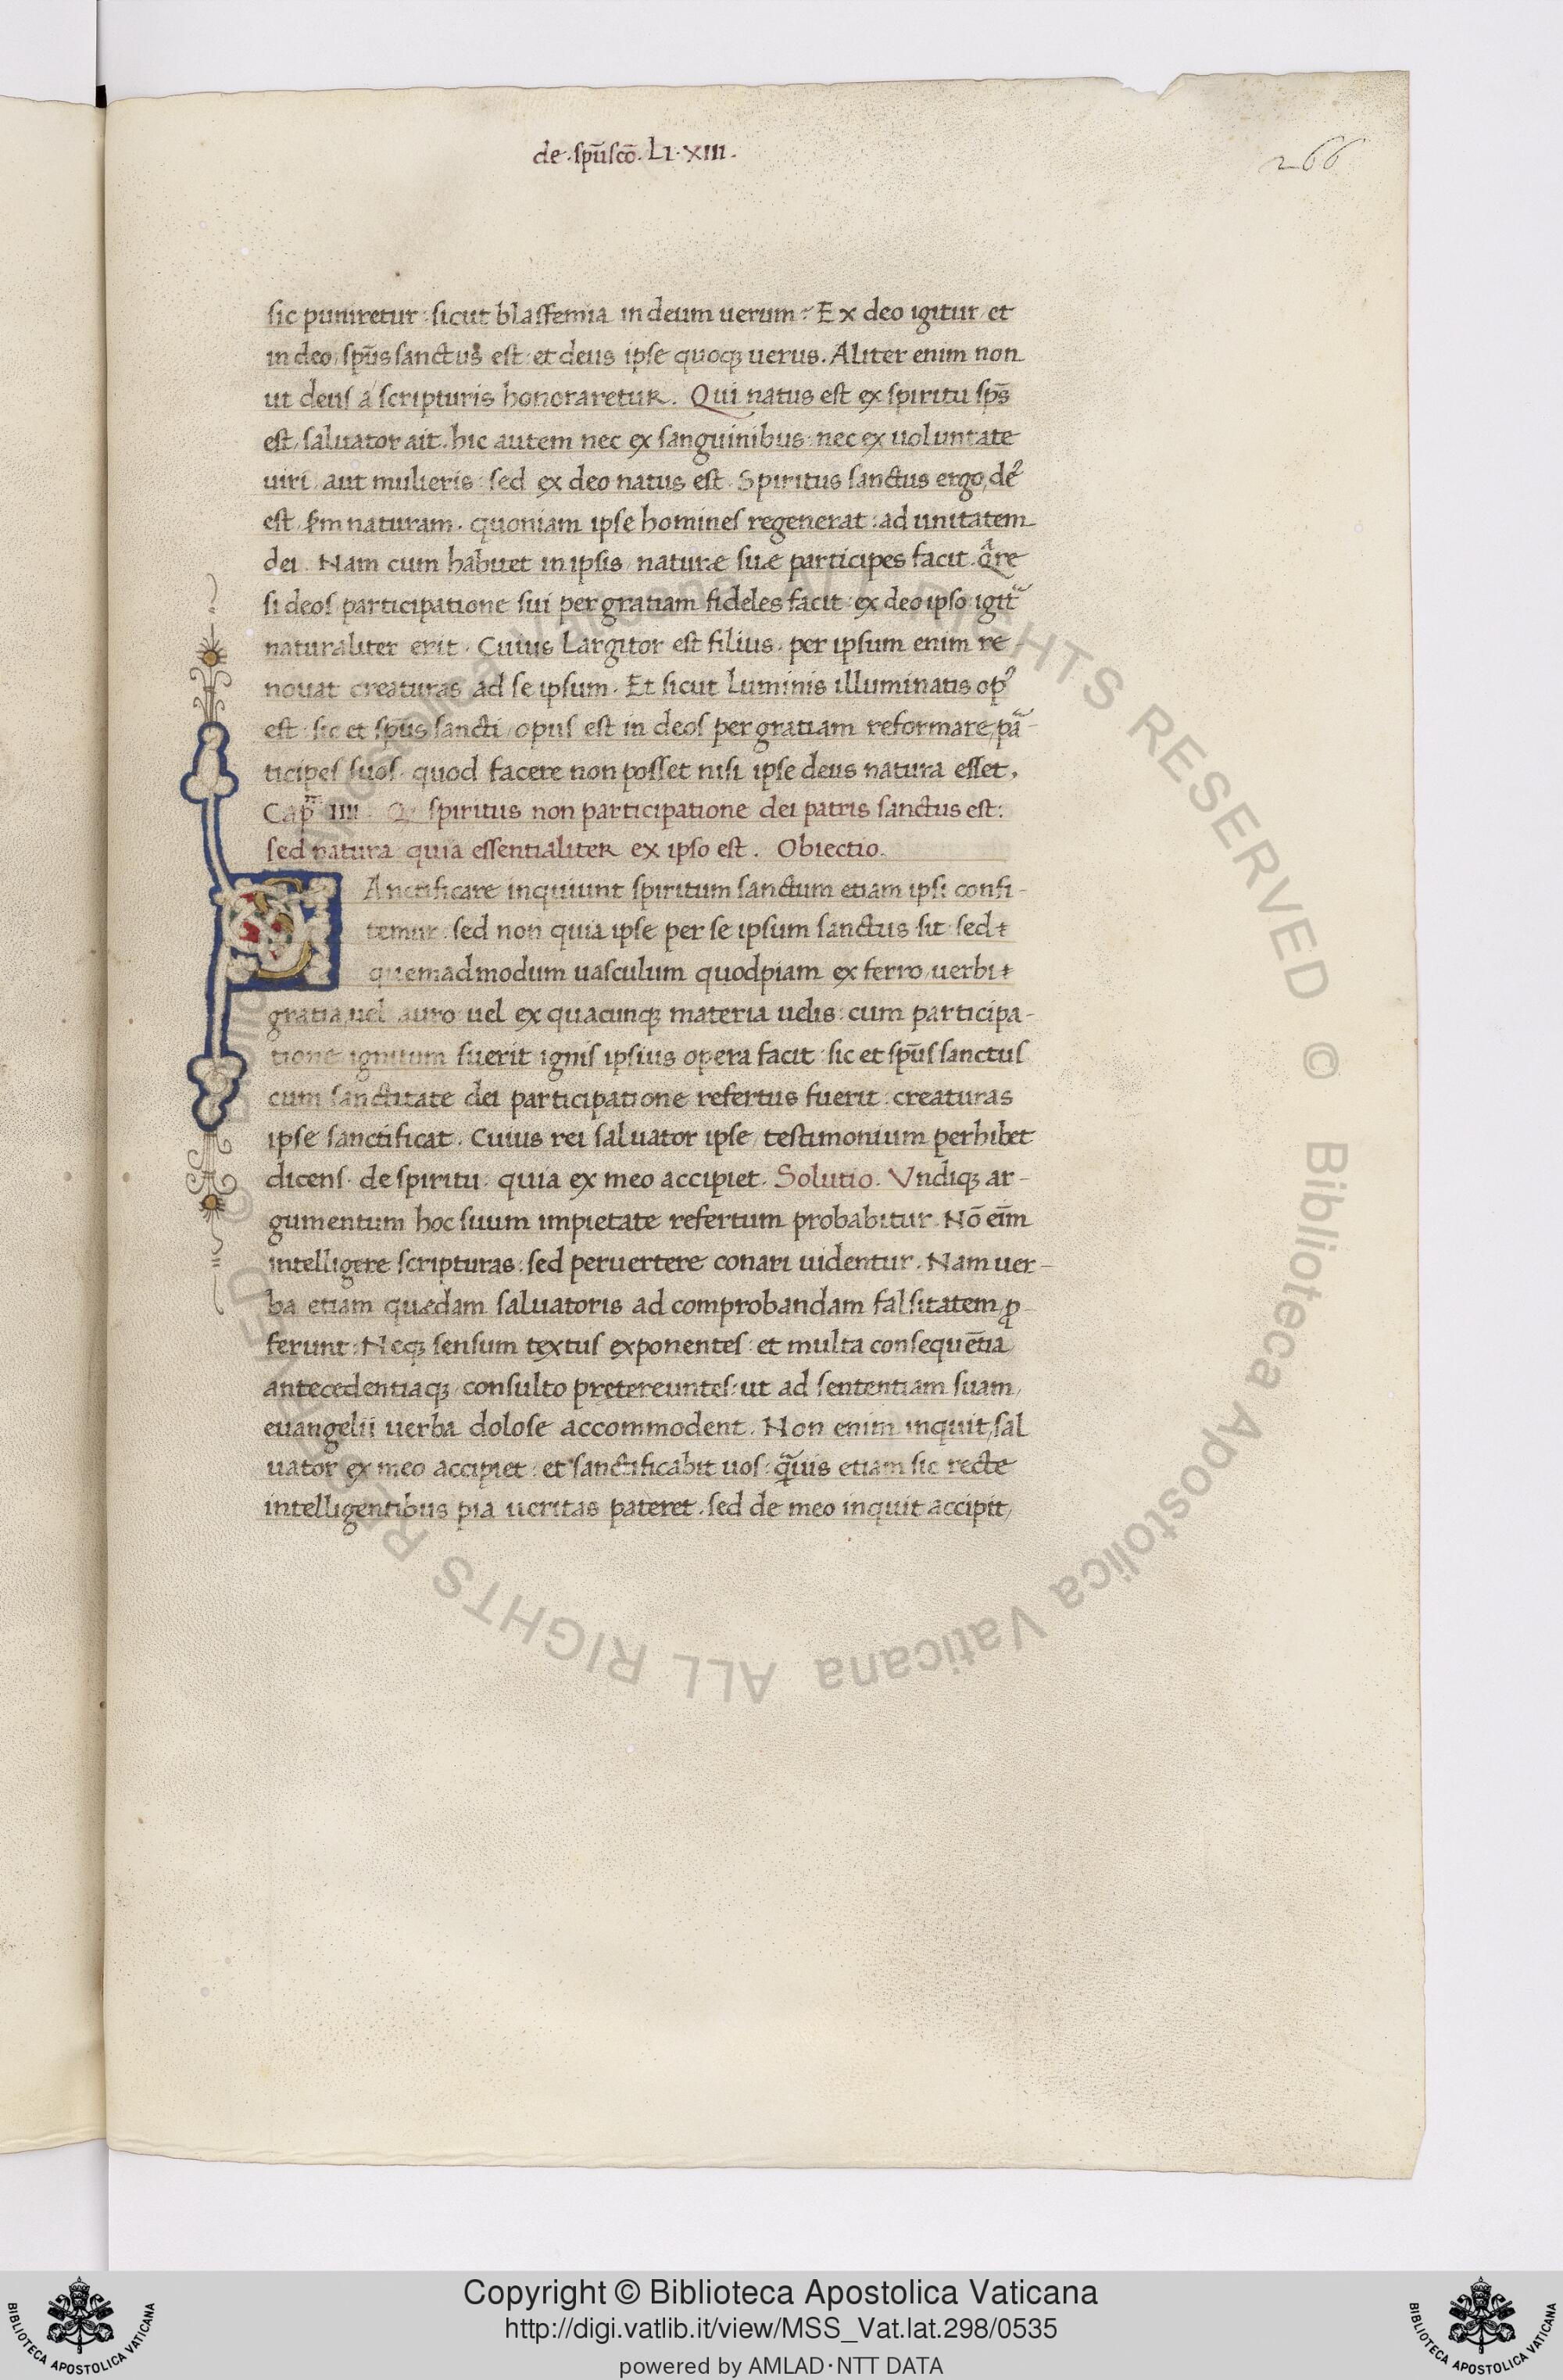 de . sp̄u scō . LI . XIII .
266
sic puniretur : sicut blasfemia in deum uerum ? Ex deo igitur / et
in deo / sp̄us sanctus est : et deus ipse quoqꝫ uerus . Aliter enim non
ut deus a scripturis honoraretur . Qui natus est ex spiritu sp̄s
est / saluator ait . hic autem nec ex sanguinibus : nec ex uoluntate
uiri / aut mulieris : sed ex deo natus est . Spiritus sanctus ergo / deꝰ
est / ẜm naturam . quoniam ipse homines regenerat : ad unitatem
dei . Nam cum habuet in ipsis / naturæ suæ participes facit . Qͣre
si deos / participatione sui per gratiam fideles facit : ex deo ipso igit᷑
naturaliter erit . Cuius largitor est filius . per ipsum enim re
nouat creaturas ad se ipsum . Et sicut luminis illuminatis opꝰ
est : sic et sp̄us sancti / opus est in deos per gratiam reformare / pa᷑-
ticipes suos . quod facere non posset nisi ipse deus natura esset .
Capm IIII . Q spiritus non participatione dei patris sanctus est :
sed natura quia essentialiter ex ipso est . Obiectio .
SAnctificare inquiunt spiritum sanctum etiam ipsi confi-
temur : sed non quia ipse per se ipsum sanctus sit : sed
quemadmodum uasculum quodpiam ex ferro / uerbi
gratia / uel auro : uel ex quacunqꝫ materia uelis : cum participa-
tione ignitum fuerit ignis ipsius opera facit : sic et sp̄us sanctus
cum sanctitate dei participatione refertus fuerit : creaturas
ipse sanctificat . Cuius rei saluator ipse / testimonium perhibet
dicens . de spiritu : quia ex meo accipiet . Solutio . Vndiqꝫ ar-
gumentum hoc suum impietate refertum probabitur . Nō eīm
intelligere scripturas : sed peruertere conari uidentur . Nam uer-
ba etiam quædam saluatoris ad comprobandam falsitatem / ꝓ
ferunt : Neqꝫ sensum textus exponentes : et multa consequētia
antecedentiaqꝫ / consulto pretereuntes : ut ad sententiam suam /
euangelii uerba dolose accommodent . Non enim inquit / sal
uator ex meo accipiet : et sanctificabit uos : qͣuis etiam sic recte
intelligentibus pia ueritas pateret . sed de meo inquit accipit /
© Biblioteca Apostolica Vaticana ALL RIGHTS RESERVED © Biblioteca Apostolica Vaticana ALL RIGHTS RESERVED
Copyright © Biblioteca Apostolica Vaticana
http://digi.vatlib.it/view/MSS_Vat.lat.298/0535
powered by AMLAD·NTT DATA
BIBLIOTECA APOSTOLICA VATICANA
BIBLIOTECA APOSTOLICA VATICANA